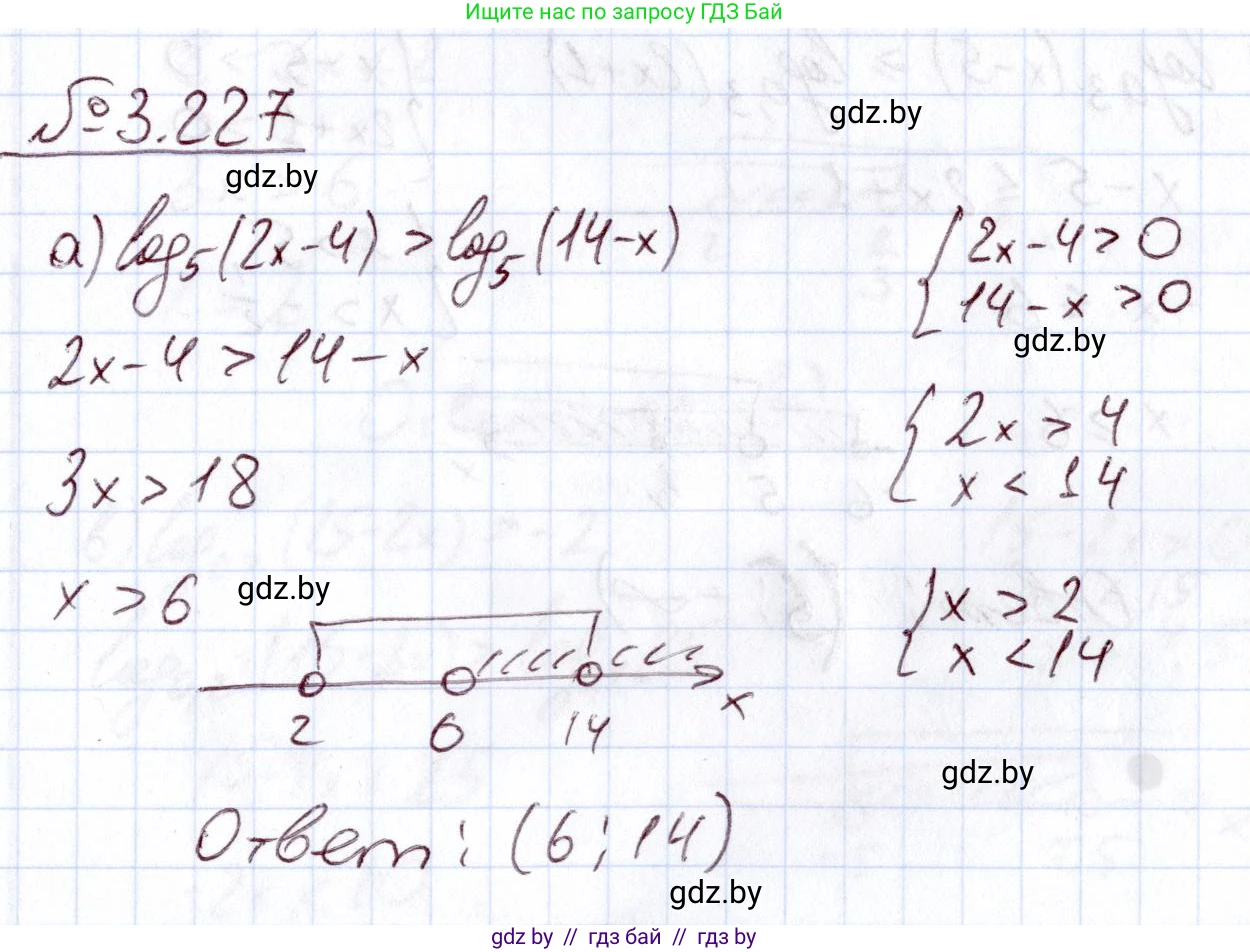 Ищите нас по запросу ГДЗ Бай
№ 3.227
gdz.by
gdz.by
а) log₅(2x-4) > log₅(14-x)
{ 2x-4 > 0
14-x > 0
gdz.by
2x-4 > 14-x
{ 2x > 4
x < 14
3x > 18
x > 6
gdz.by
{ x > 2
x < 14
2 6 14 x
gdz.by
Ответ: (6; 14)
gdz.by
gdz by // гдз бай // гдз by